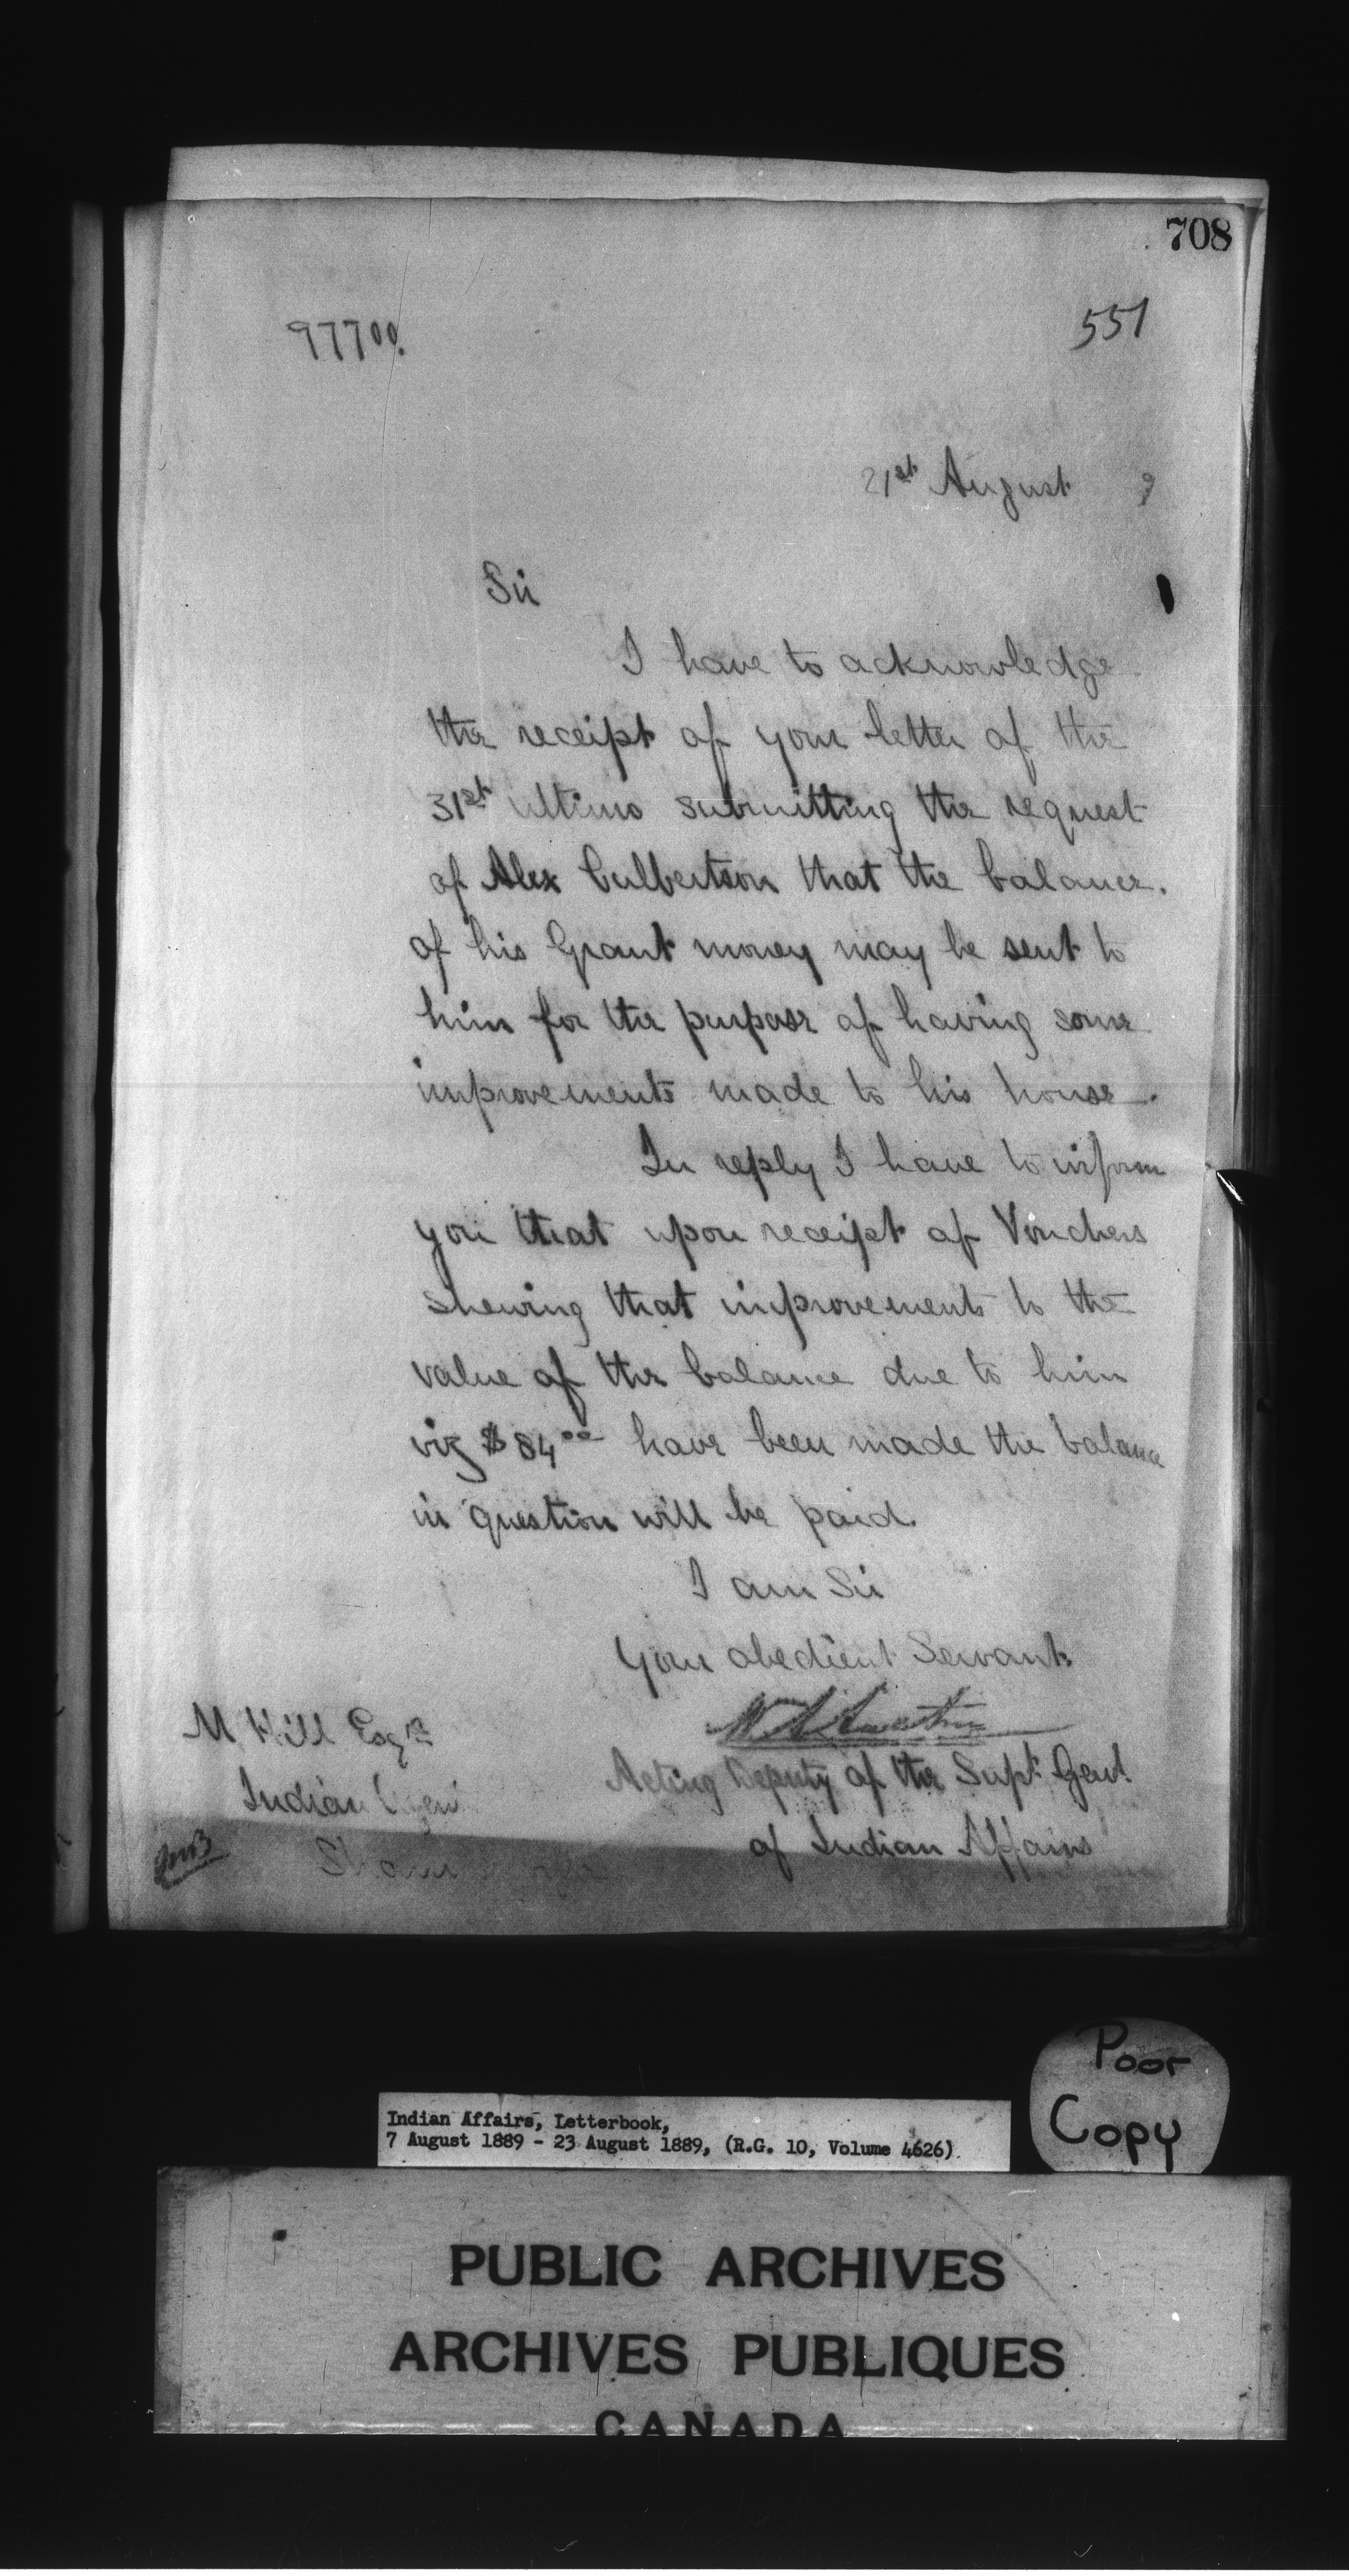 708
97700.
551
21st August 9
Sir
I have to acknowledge
the receipt of your letter of the
31st ultimo submitting the request
of Alex Culbertson that the balance
of his Grant money may be sent to
him for the purpose of having some
improvements made to his house.
In reply I have to inform
you that upon receipt of Vouchers
shewing that improvements to the
value of the balance due to him
viz $84.00 have been made the balance
in question will be paid.
I am Sir
Your obedient Servant
Acting Deputy of the Supt Genl.
of Indian Affairs
M Hill Esqre
Indian Agent
Poor
Copy
Indian Affairs, Letterbook,
7 August 1889 - 23 August 1889, (R.G. 10, Volume 4626)
PUBLIC ARCHIVES
ARCHIVES PUBLIQUES
CANADA